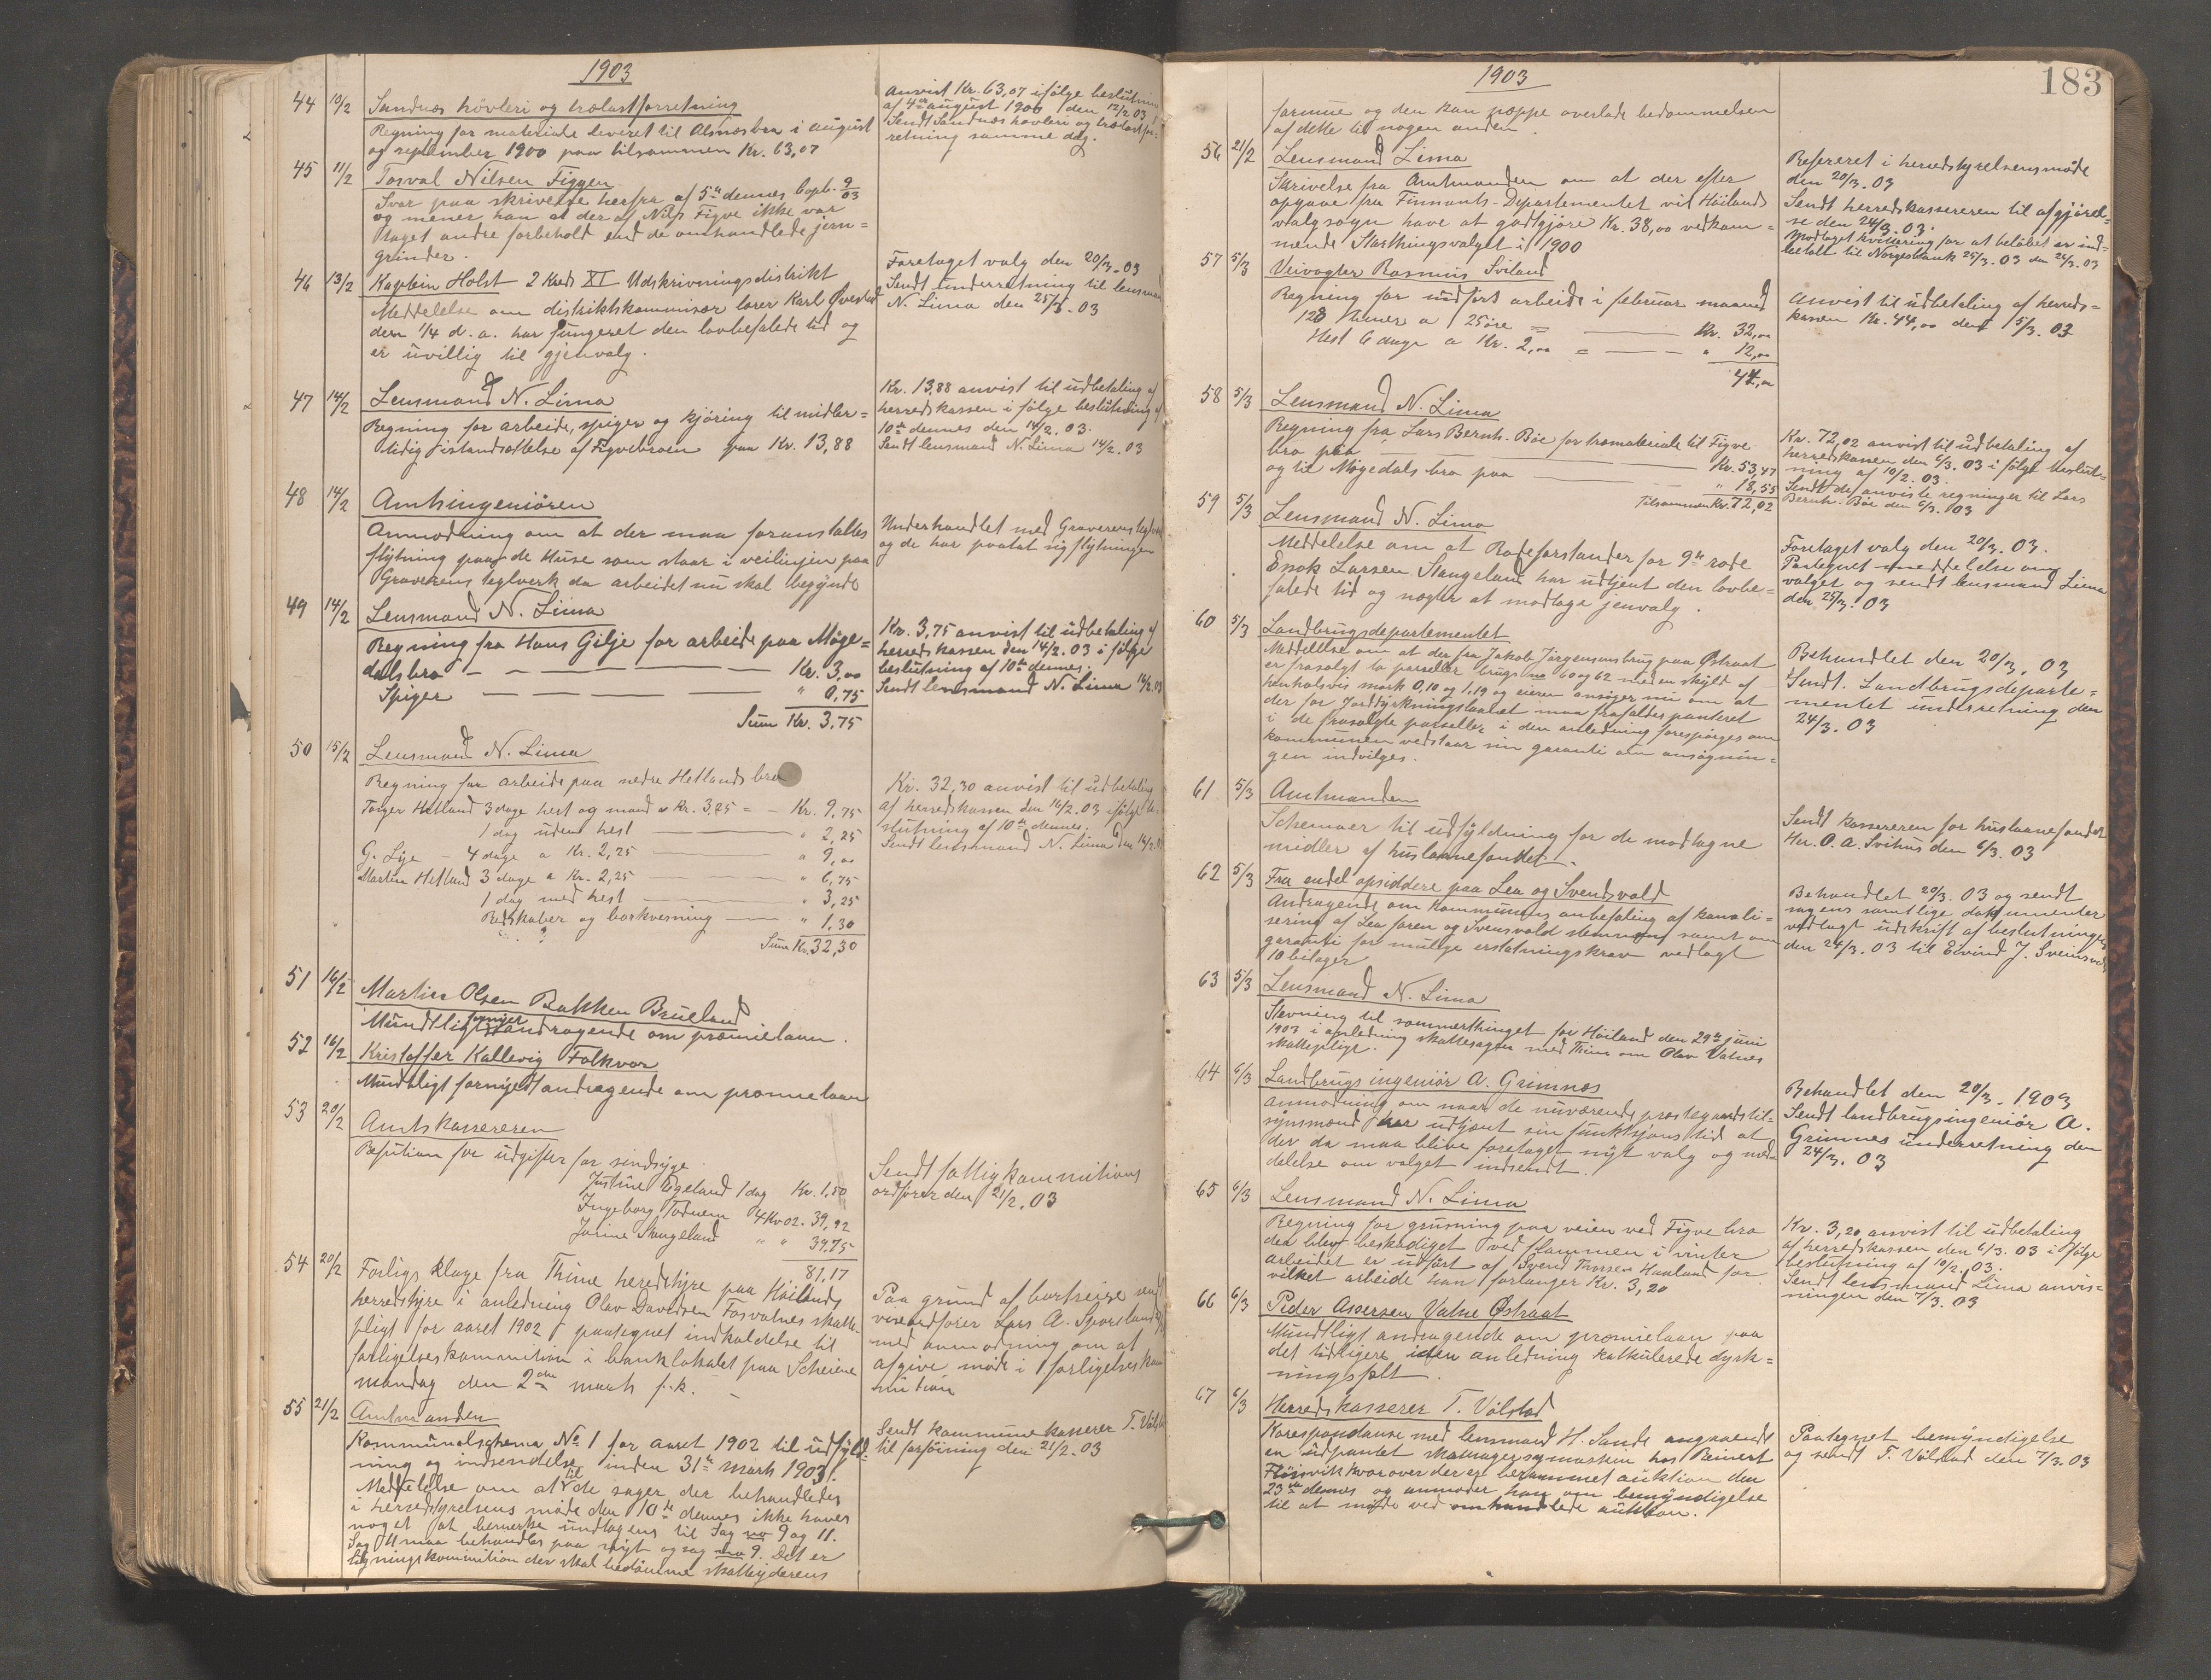 1903
44 10/2 Sandnæs hövleri og trælastforretning
Regning for materiale leveret til Alsnæsbro i august
og september 1900 paa tilsammen Kr. 63,07
Anvist Kr. 63,07 ifölge beslutning
af 4de august 1900 den 12/2 03
Sendt Sandnæs hövleri og trælastfor-
retning samme dag.
45 11/2 Tosval Nilsen Figgen
Svar paa skrivelse herfra af 5te dennes Copb. 9/03
og mener han at der af Nils Figve ikke var
taget andre forbehold end de omhandlede jern=
grinder.
46 13/2 Kaptein Holst 2 Kreds XI Udskrivningsdistrikt
Meddelelse om distriktskommisær lærer Karl Øvestad
den 1/4 d. a. har fungeret den lovbefalede tid og
er uvillig til gjenvalg.
Foretaget valg den 20/3. 03
Sendt underretning til lensmand
N. Lima den 25/3. 03
47 14/2 Lensmand N. Lima
Regning for arbeide, spiger og kjöring til midler=
tidig istandsættelse af Figvebroen paa Kr. 13,88
Kr. 13,88 anvist til udbetaling af
herredskassen i fölge beslutning af
10de dennes den 14/2. 03.
Sendt lensmand N. Lima 14/2. 03
48 14/2 Amtsingeniören
Anmodning om at der maa foranstaltes
flytning paa de Huse som staar i veilinjen paa
Graverens teglverk da arbeidet nu skal begynde
Underhandlet med Graverens teglverk
og de har paatat sig flytningen
49 14/2 Lensmand N. Lima
Regning fra Hans Gilje for arbeide paa Möge=
dalsbro — — — Kr. 3,00
Spiger — — — " 0,75
Sum Kr. 3,75
Kr. 3,75 anvist til udbetaling af
herredskassen den 14/2. 03 i fölge
beslutning af 10de dennes.
Sendt lensmand N. Lima 14/2. 03
50 15/2 Lensmand N. Lima
Regning for arbeide paa nedre Hetlands bro
Torger Hetland 3 dage hest og mand a Kr. 3,25 = — Kr. 9,75
1 dag uden hest — " 2,25
G. Lye — 4 dage a Kr. 2,25 — " 9,00
Martin Hetland 3 dage a Kr. 2,25 — " 6,75
1 dag med hest — " 3,25
Redskaber og borkvesning — " 1,30
Sum Kr. 32,30
Kr. 32,30 anvist til udbetaling
af herredskassen den 16/2. 03 ifölge be-
slutning af 10de dennes.
Sendt lensmand N. Lima den 16/2.
51 16/2 Martin Olsen Bakken Brueland
Mundtligt fornyet andragende om præmielaan.
52 16/2 Kristoffer Kallevig Folkvor
Mundtligt fornyet andragende om præmielaan
53 20/2 Amtskassereren
Refution for udgifter for sindsyge
Justine Egeland 1 dag Kr. 1,50
Ingeborg Todnem 4 Kv 02. 39,92
Jorine Stangeland " " 39,75
81,17
Sendt fattigkommitions
ordförer den 21/2. 03
54 20/2 Forligs klage fra Thime heredstyre paa Höilands
herredstyre i anledning Olav Davidsen Fosvatnes skatte-
pligt for aaret 1902 paategnet indkaldelse til
forligelseskommition i banklokalet paa Scheiene
mandag den 2den marts f.k.
Paa grund af bortreise sendt
viseordförer Lars A. Sporeland
med anmodning om at
afgive möde i forligelseskom
mition
55 21/2 Amtmanden
Kommunalschema No 1 for aaret 1902 til udfyld=
ning og indsendelse inden 31te marts 1903.
Meddelelse om at til de sager der behandledes
i herredstyrelsens möde den 10de dennes ikke haves
noget at bemerke undtagens til Sag no 9 og 11.
Sag 11 maa behandles paa nyt og sag no 9. Det er
ligningskommition der skal bedömme skatteyderens
Sendt kommunekasserer T. Völstad
til forföining den 21/2. 03
1903
183
formue og den kan næppe overlade bedömmelsen
af dette til nogen anden.
56 21/2 Lensmand Lima
Skrivelse fra Amtmanden om at der efter
opgave fra Finants-Departementet vil Höilands
valgsogn have at godtgjöre Kr. 38,00 vedkom=
mende Storthingsvalget i 1900
Refereret i herredstyrelsensmöde
den 20/3. 03
Sendt herredskassereren til afgjörel-
se den 24/3. 03.
Modtaget kvittering for at belöbet er ind-
betalt til Norgesbank 25/3. 03 den 26/3. 03
57 5/3 Veivogter Rasmus Sviland
Regning for udfört arbeide i februar maaned
128 timer a 25 öre = — Kr. 32,00
Hest 6 dage a Kr. 2,00 = — " 12,00
44,00
Anvist til udbetaling af herreds-
kassen Kr. 44,00 den 5/3. 03
58 5/3 Lensmand N. Lima
Regning fra Lars Bernh. Böe for træmateriale til Figve
bro paa — Kr. 53,47
og til Mögedals bro paa — " 18,55
Tilsammen Kr. 72,02
Kr. 72,02 anvist til udbetaling af
herredskassen den 6/3. 03 i fölge beslut=
ning af 10/2. 03.
Sendt de anviste regninger til Lars
Bernh. Böe den 6/3. 03
59 5/3 Lensmand N. Lima
Meddelelse om at Rodeforstander for 9de rode
Enok Larsen Stangeland har udtjent den lovbe=
falede tid og nægter at modtage jenvalg.
Foretaget valg den 20/3. 03.
Paategnet meddelelse om
valget og sendt lensmand Lima
den 25/3. 03
60 5/3 Landbrugsdepartementet
Meddelelse om at der fra Jakob Jörgensens brug paa Østraat
er frasolgt to parseller brugs no 60 og 62 med en skyld af
henholsvis mark 0,10 og 1,19 og eieren ansöger nu om at
der for Jorddyrkningslaanet maa frafaldes panteret
i de frasolgte parseller i den anledning foresporges om
kommunen vedstaar sin garanti om ansögnin=
gen indvilges.
Behandlet den 20/3. 03
Sendt. Landbrugsdeparte=
mentet underretning den
24/3. 03
61 5/3 Amtmanden
Schemaer til udfyldning for de modtagne
midler af huslaanefondet.
Sendt kassereren for huslaanefondet
Hr. O. A. Svihus den 6/3. 03
62 5/3 Fra endel opsiddere paa Lea og Svendsvold
Andragende om Kommunens anbefaling af kanali=
sering af Lea foren og Svensvold stemmen samt om
garanti for mulige erstatningskrav vedlagt
10 bilager
Behandlet 20/3. 03 og sendt
sagens samtlige dokumenter
vedlagt udskrift af beslutningen
den 24/3. 03 til Eivind J. Svensvold
63 5/3 Lensmand N. Lima
Stevning til sommerthinget for Höiland den 29de juni
1903 i anledning skattesagen med Thime om Olav Vatnes
skattepligt.
64 6/3 Landbrugsingeniör A. Grimnæs
Anmodning om naar de nuværende præstegjældstil-
synsmænd har udtjænt sin funktsjonstid at
der da maa blive foretaget nyt valg og med-
delelse om valget indsendt.
Behandlet den 20/3. 1903
Sendt landbrugsingeniör A.
Grimnes underretning den
24/3. 03
65 6/3 Lensmand N. Lima
Regning for grusning paa veien ved Figve bro
der blev beskadiget ved flommen i vinter
arbeidet er udfört af Svend Thorsen Hauland for
vilket arbeide han forlanger Kr. 3,20
Kr. 3,20 anvist til udbetaling
af herredskassen den 6/3. 03 i fölge
beslutning af 10/2. 03.
Sendt lensmand Lima anvis=
ningen den 7/3. 03
66 6/3 Peder Assersen Vatne Østraat
Mundtligt andragende om præmielaan paa
det tidligere i den anledning kalkulerede dyrk=
ningsfelt.
67 6/3 Herredskasserer T. Völstad
Korespondanse med lensmand H. Sande angaaende
en udpantet skomagersymaskin hos Reinert
Flöisvik hvorover der er berammet auktion den
23de dennes og anmoder han om bemyndigelse
til at möde ved omhandlede auktion.
Paategnet bemyndigelse
og sendt T. Völstad den 7/3. 03